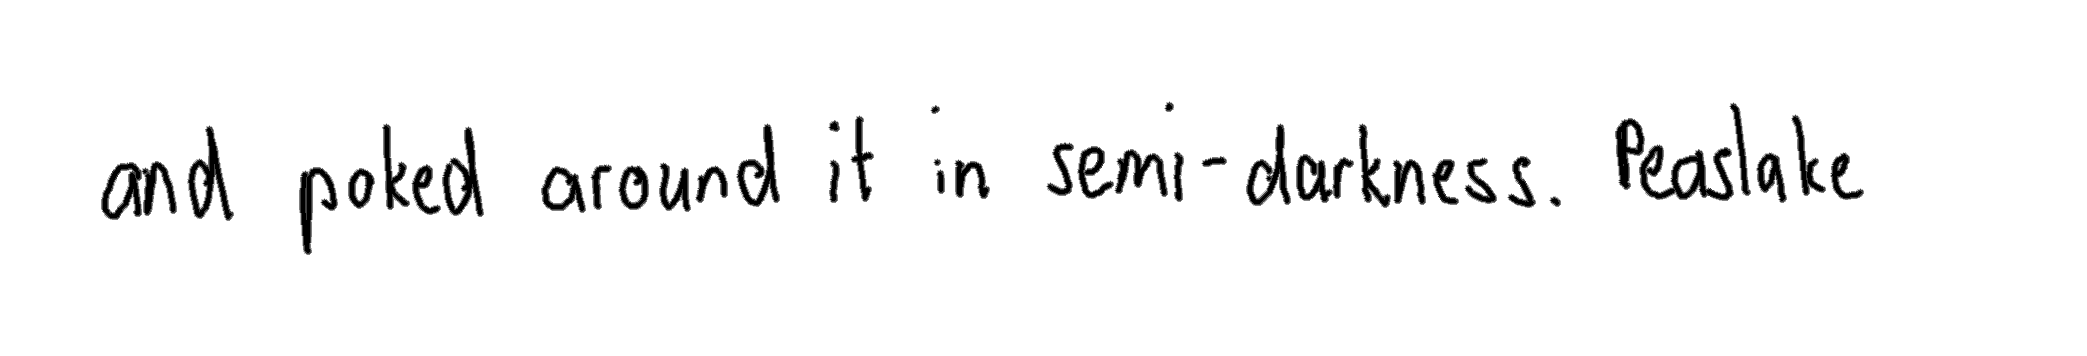 and poked around it in semi-darkness. Peaslake